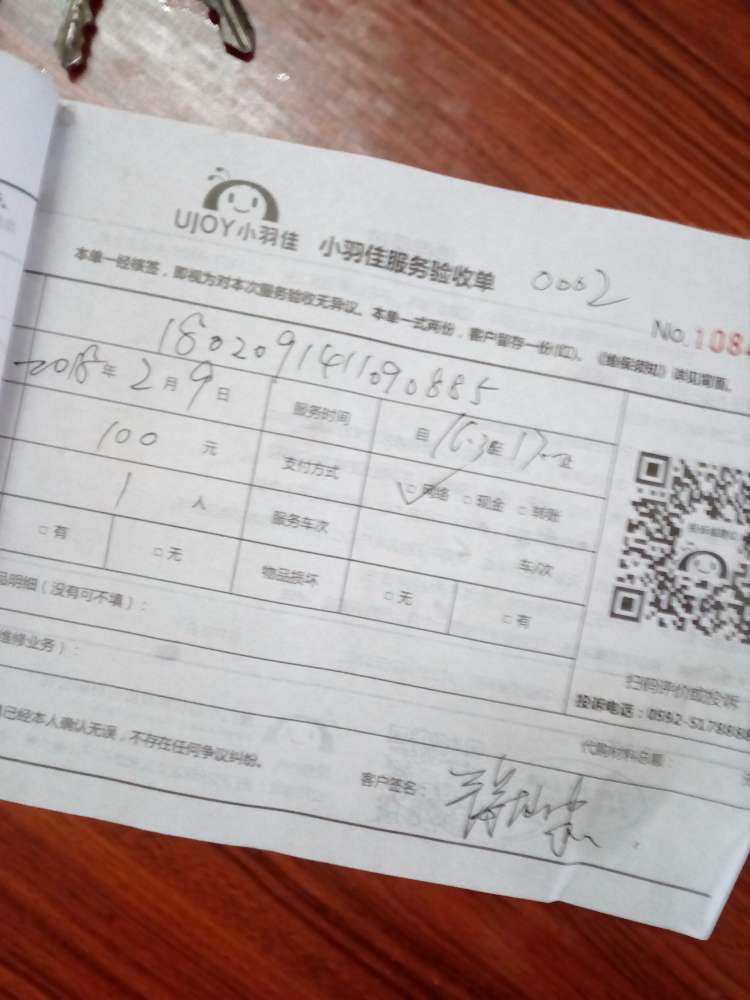 UJOY小羽佳 小羽佳服务验收单 0062
本单一经核签，即视为对本次服务验收无异议。本单一式两份，客户留存一份(红)。《维保须知》详见背面。
No.1084
1802091411090885
2018年2月9日 服务时间 自16:30至17:00止
100元 支付方式 □网络 □现金 □转账
1人 服务车次 车/次
□有 □无 物品损坏 □无 □有
品明细（没有可不填）：
维修业务）：
扫码评价或投诉
投诉电话：0592-5178888
代购材料总额：
已经本人确认无误，不存在任何争议纠纷。
客户签名：